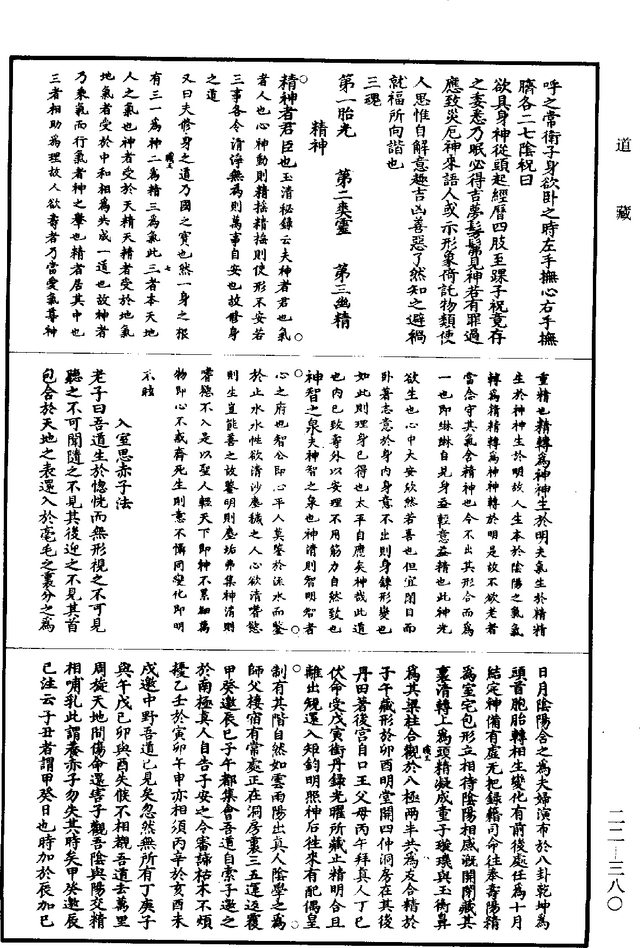 道藏
呼之常衛子身欲卧之時左手撫心右手撫
臍各二七陰祝曰
欲具身神從頭起經曆四肢至踝子祝竟存
之委悉乃眠必得吉夢髣髴見神若有罪過
應致災厄神來語人或示形象倚託物類使
人思惟自解意趣吉凶善惡了然知之避禍
就福所向諧也
三魂
第一胎光 第二爽靈 第三幽精
精神
精神者君臣也玉清秘錄云夫神者君也氣
者人也心神動則精搖精搖則使形不安若
三事各令清淨無為則萬事自安也故修身
之道
又曰夫修身之道乃國之寶也然一身之根
有三一為神二為精三為氣此三者本天地
人之氣也神者受於天精天精者受於地氣
地氣者受於中和相為共成一道也故神者
乃乘氣而行氣者神之轝也精者居其中也
三者相助為理故人欲壽者乃當愛氣尊神
重精也精轉為神神生於明夫氣生於精精
生於神神生於明故人生本於陰陽之氣氣
轉為精精轉為神神轉於明是故不欲老者
當念守其氣含精神也令不出其形合而為
一也即綝綝自見身益輕意益精也此神光
欲生也心中大安欣然若喜也但宜閉目而
卧著志意於身内身意不出則身鍊形變也
如此則理身已得也太平自應矣神哉此道
也内已致壽外以安理不用筋力自然致也
神智之泉夫神智之泉也神清則智明智者
心之府也智公即心平人莫鑒於流水而鑒
於止水水性欲清沙塵穢之人心欲清嗜慾
則生豈能害之故鑒明則塵垢弗集神清則
嗜慾不入是以聖人輕天下即神不累細萬
物即心不惑齊死生則意不懾同變化即明
不眩
入室思赤子法
老子曰吾道生於惚恍而無形視之不可見
聽之不可聞隨之不見其後迎之不見其首
包含於天地之表還入於毫毛之裏分之為
日月陰陽含之為夫婦演布於八卦乾坤為
頭首胞胎轉相生變化有前後處任為十月
結定神備有虛无把錄籍司命往奉壽陽精
為室宅包形立相待陰陽相感溉開閉藏其
裏清轉上為頭精凝成童子璇璣與玉衡鼻
為其梁柱合觀於八極兩半共為友合精於
子午藏形於卯酉明堂開四仲洞房在其後
丹田著後宮自口王父母丙午拜真人丁巳
伏命受戊寅銜丹錄光曜所藏止精明合且
離出規還入矩鈞明照神后往來有配偶皇
制有其階自然如雲雨陽出真人陰學之為
師父樓宿有常處正在洞房裏三五運返覆
甲癸邀辰巳子午都集會吾道自索子邀之
於南極真人自告子安之令審諦枯木不煩
擾乙壬於寅卯午申亦相須丙辛於亥酉未
戌邀中野吾道已見矣忽然無所有丁庚子
與午戊己卯與酉失候不相覩吾道去萬里
周旋天地間傷命還害子觀吾陰與陽交精
相哺乳此謂養赤子勿失其時矣甲癸邀辰
巳注云子丑者謂甲癸日也時加於辰加巳
二二—三八〇